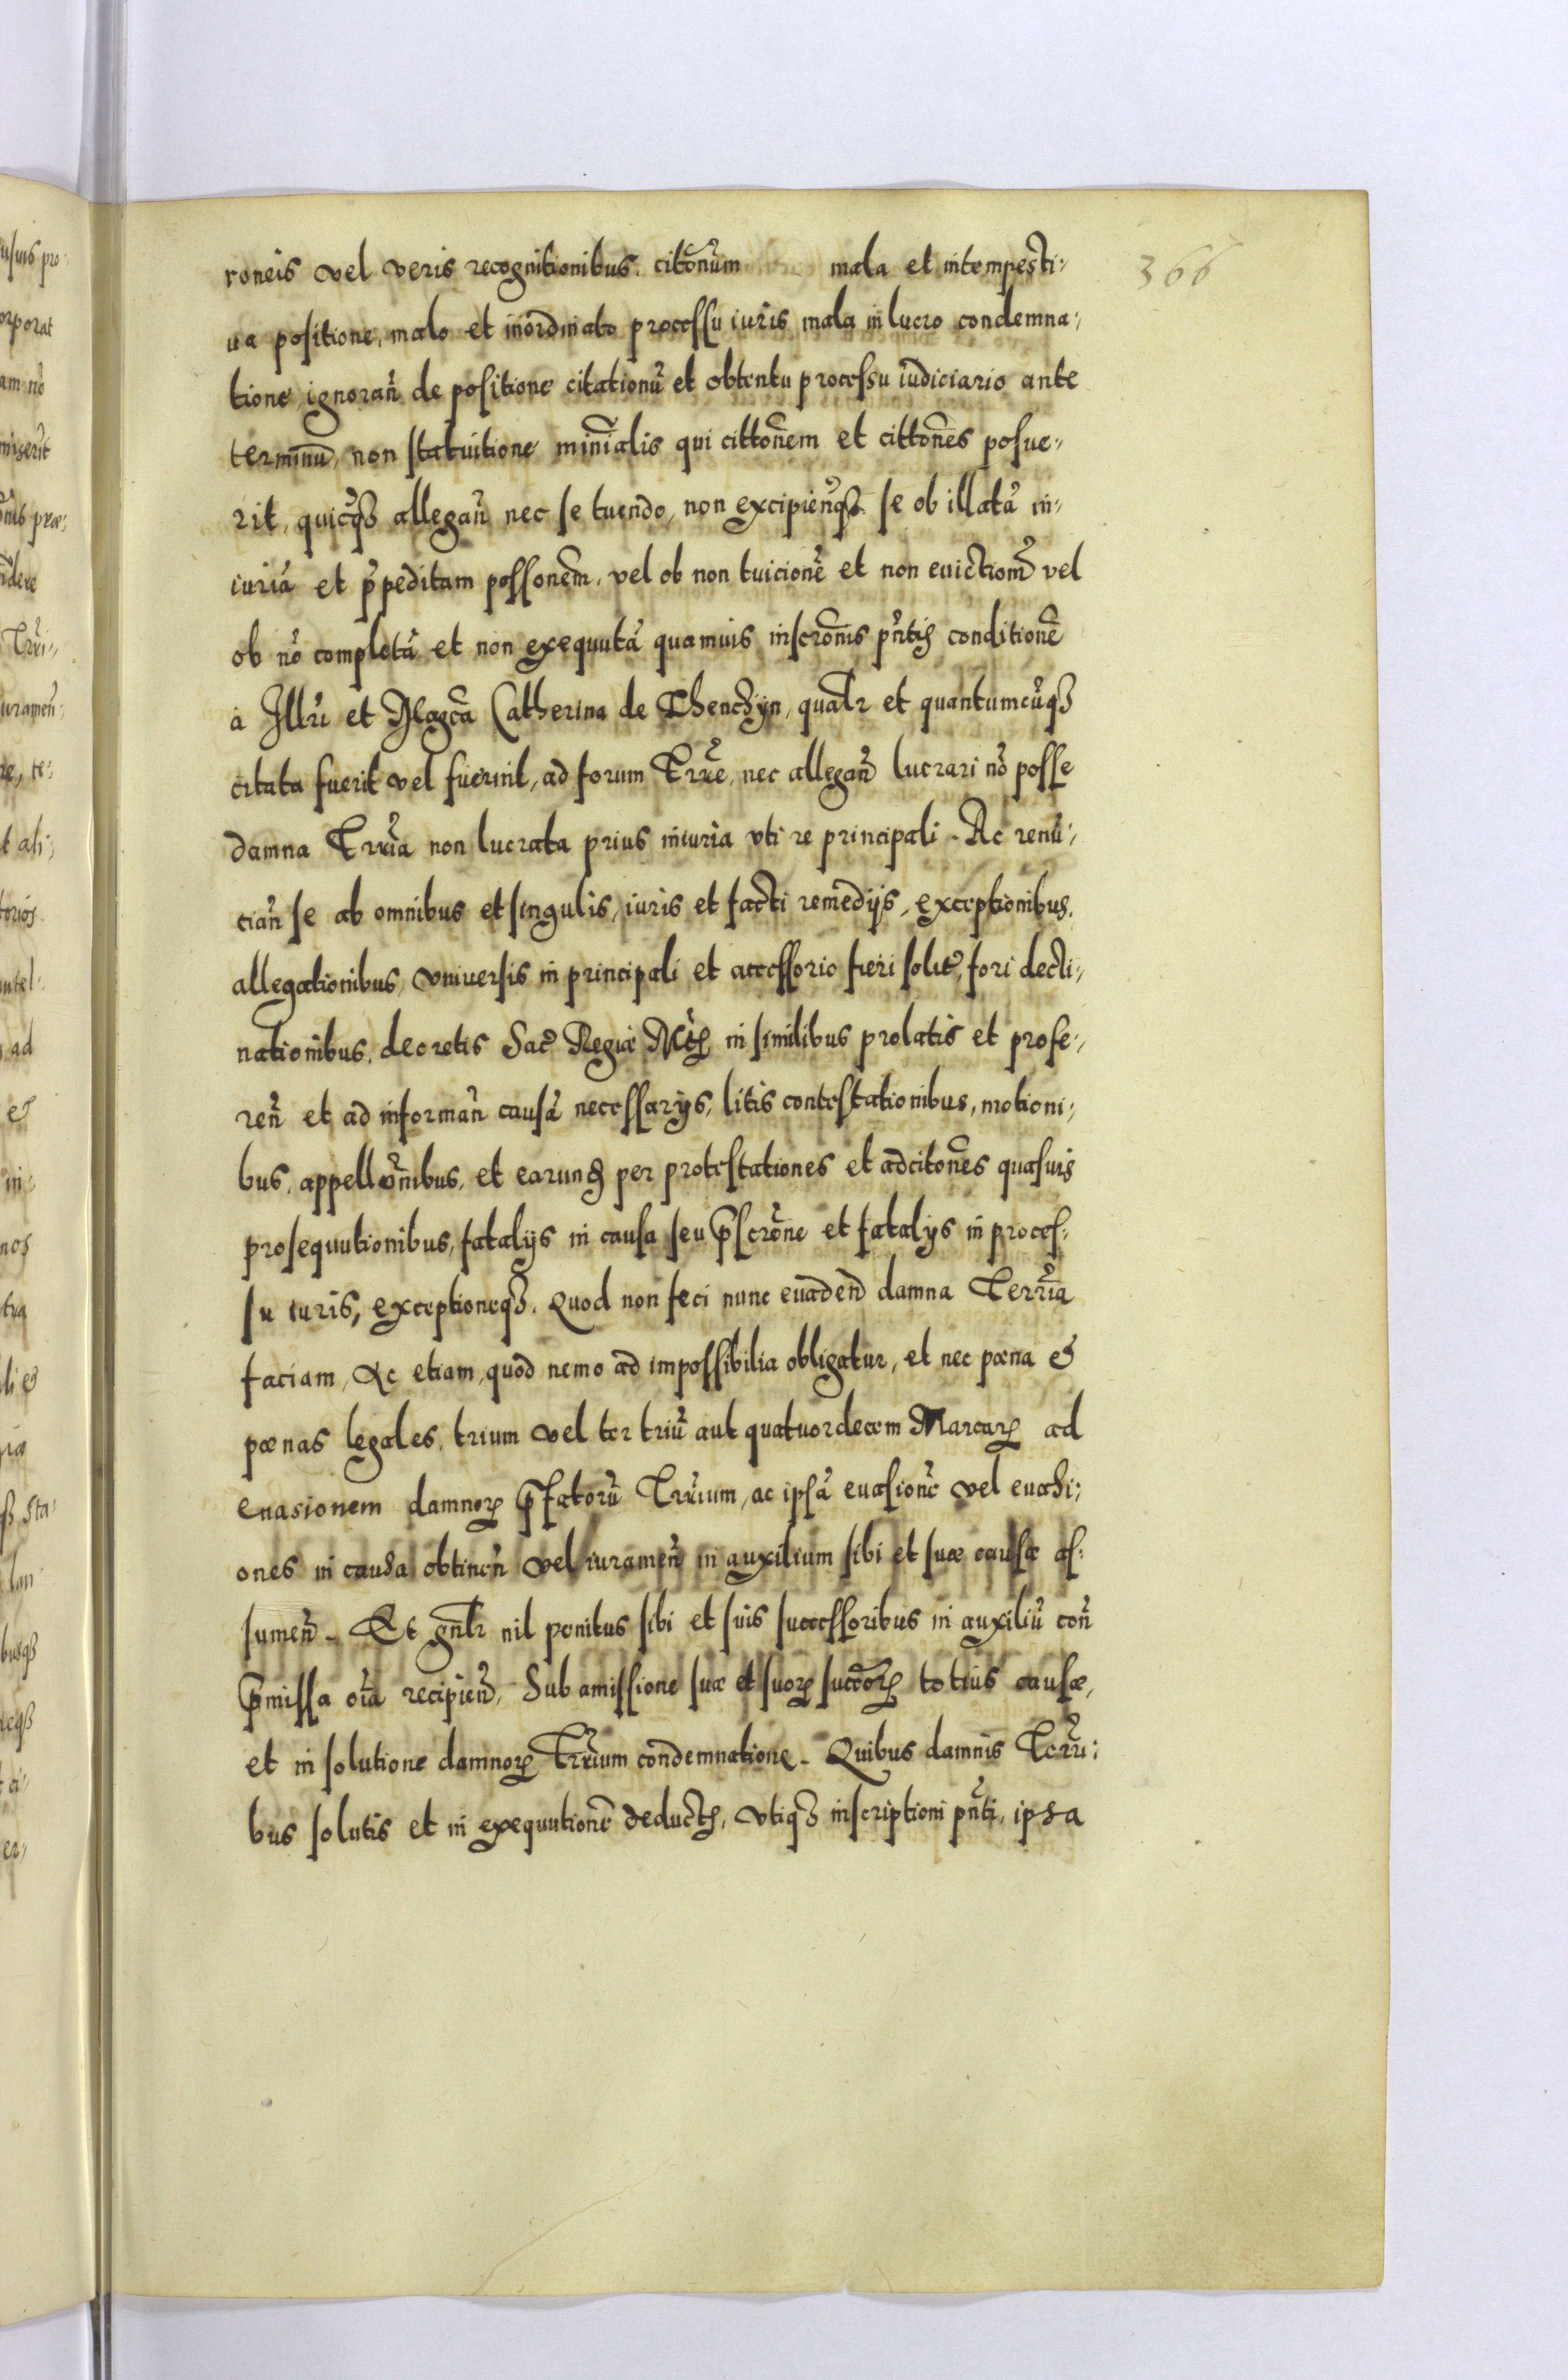 roneis vel veris recognitionibus. citõnum mala et intempesti-
366
ua positione, malo et inordinato processu iuris mala in lucro condemna-
tione, ignorañ de positione citationũ et obtentu processu iudiciario ante
terminũ, non statuitione minĩalis qui cittõnem et cittõnes posue-
rit, quicq̃ȝ allegañ nec se tuendo, non excipienq̃ȝ se ob illatã in-
iuriã et p̃peditam possonẽm, vel ob non tuicionẽ et non euictionẽ vel
ob nõ completã et non exequutã quamuis inscrõnis pñtis conditionẽ
à Illri et Magcã Catherina de Thenchyn, qualr̃ et quantumcũqȝ
citata fuerit vel fuerint, ad forum Trrẽ, nec allegañ lucrari nõ posse
damna Trriã non lucrata prius iniuria vti re principali. Ac renũ-
ciañ se ab omnibus et singulis, iuris et facti remedijs, exceptionibus,
allegationibus, vniuersis in principali et accessorio fieri solit̃, fori decli-
nationibus, decretis Sac̃ Regiæ Mtis̃ in similibus prolatis et profe-
reñ et ad informañ causã necessarijs, litis contestationibus, motioni-
bus, appellõnibus, et earund̃ per protestationes et adcitõnes quasuis
prosequutionibus, fatalijs in causa seu p̃scrõne et fatalijs in proces-
su iuris, exceptioneqȝ. Quod non feci nunc euadend̃ damna Terrĩa
faciam, Ac etiam, quod nemo ad impossibilia obligatur, et nec pœna &
pœnas legales, trium vel ter triũ aut quatuordecem Marcarꝝ ad
euasionem damnorꝝ p̃fatorũ Trrĩum, ac ipsã euasionẽ vel euasi-
ones in causa obtineñ vel iurameñ in auxilium sibi et suæ causæ as-
sumeñ. Et gñlr nil penitus sibi et suis successoribus in auxiliũ coñ
p̃missa oĩa recipieñ, Sub amissione suæ et suorꝝ succõrꝝ totius causæ,
et in solutione damnorꝝ Trrĩum condemnatione. Quibus damnis Terrĩ-
bus solutis et in exequutionẽ deductis, vtiqȝ inscriptioni pñti, ipsa